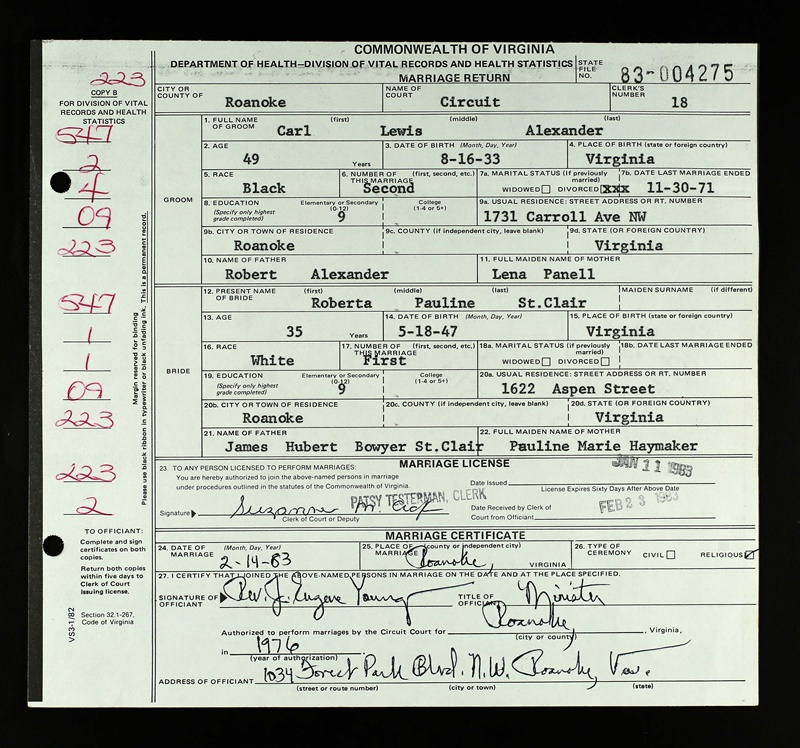 COMMONWEALTH OF VIRGINIA
DEPARTMENT OF HEALTH—DIVISION OF VITAL RECORDS AND HEALTH STATISTICS
MARRIAGE RETURN
STATE FILE NO. 83-004275
223
COPY B
FOR DIVISION OF VITAL RECORDS AND HEALTH STATISTICS
547
2
4
09
223
547
1
1
09
223
223
2
TO OFFICIAL:
Complete and sign certificates on both copies.
Return both copies within five days to Clerk of Court issuing license.
Section 32.1-267, Code of Virginia
VS3-1/82
Margin reserved for binding
Please use black ribbon in typewriter or black unfading ink. This is a permanent record.
CITY OR COUNTY OF Roanoke NAME OF COURT Circuit CLERK'S NUMBER 18
GROOM
1. FULL NAME OF GROOM (first) (middle) (last)
Carl Lewis Alexander
2. AGE 49 Years 3. DATE OF BIRTH (Month, Day, Year) 8-16-33 4. PLACE OF BIRTH (state or foreign country) Virginia
5. RACE Black 6. NUMBER OF THIS MARRIAGE (first, second, etc.) Second 7a. MARITAL STATUS (If previously married) WIDOWED DIVORCED xxx 7b. DATE LAST MARRIAGE ENDED 11-30-71
8. EDUCATION (Specify only highest grade completed) Elementary or Secondary (0-12) 9 College (1-4 or 5+) 9a. USUAL RESIDENCE: STREET ADDRESS OR RT. NUMBER 1731 Carroll Ave NW
9b. CITY OR TOWN OF RESIDENCE Roanoke 9c. COUNTY (if independent city, leave blank) 9d. STATE (OR FOREIGN COUNTRY) Virginia
10. NAME OF FATHER Robert Alexander 11. FULL MAIDEN NAME OF MOTHER Lena Panell
BRIDE
12. PRESENT NAME OF BRIDE (first) (middle) (last) MAIDEN SURNAME (if different)
Roberta Pauline St.Clair
13. AGE 35 Years 14. DATE OF BIRTH (Month, Day, Year) 5-18-47 15. PLACE OF BIRTH (state or foreign country) Virginia
16. RACE White 17. NUMBER OF THIS MARRIAGE (first, second, etc.) First 18a. MARITAL STATUS (if previously married) WIDOWED DIVORCED 18b. DATE LAST MARRIAGE ENDED
19. EDUCATION (Specify only highest grade completed) Elementary or Secondary (0-12) 9 College (1-4 or 5+) 20a. USUAL RESIDENCE: STREET ADDRESS OR RT. NUMBER 1622 Aspen Street
20b. CITY OR TOWN OF RESIDENCE Roanoke 20c. COUNTY (if independent city, leave blank) 20d. STATE (OR FOREIGN COUNTRY) Virginia
21. NAME OF FATHER James Hubert Bowyer St.Clair 22. FULL MAIDEN NAME OF MOTHER Pauline Marie Haymaker
MARRIAGE LICENSE
23. TO ANY PERSON LICENSED TO PERFORM MARRIAGES:
You are hereby authorized to join the above-named persons in marriage
under procedures outlined in the statutes of the Commonwealth of Virginia.
Date Issued JAN 11 1983
License Expires Sixty Days After Above Date
PATSY TESTERMAN, CLERK
Signature Suzanne M.
Clerk of Court or Deputy
Date Received by Clerk of Court from Official FEB 23 1983
MARRIAGE CERTIFICATE
24. DATE OF MARRIAGE (Month, Day, Year) 2-14-83 25. PLACE OF MARRIAGE (county or independent city) Roanoke, VIRGINIA 26. TYPE OF CEREMONY CIVIL RELIGIOUS
27. I CERTIFY THAT I JOINED THE ABOVE-NAMED PERSONS IN MARRIAGE ON THE DATE AND AT THE PLACE SPECIFIED.
SIGNATURE OF OFFICIANT Rev. J. Eugene Young TITLE OF OFFICIANT Minister
Authorized to perform marriages by the Circuit Court for Roanoke, (city or county), Virginia,
in 1976 (year of authorization)
ADDRESS OF OFFICIANT 1034 Forest Park Blvd. N.W. Roanoke, Va.
(street or route number) (city or town) (state)